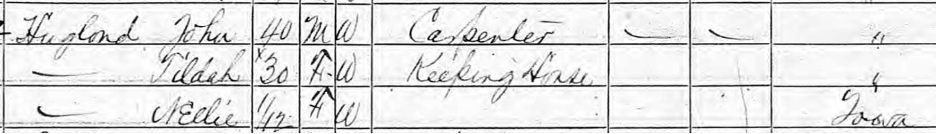 Huglond John 40 M W Carpenter — — "
— Tildah 30 F W Keeping House "
— Nellie 1/12 F W Iowa